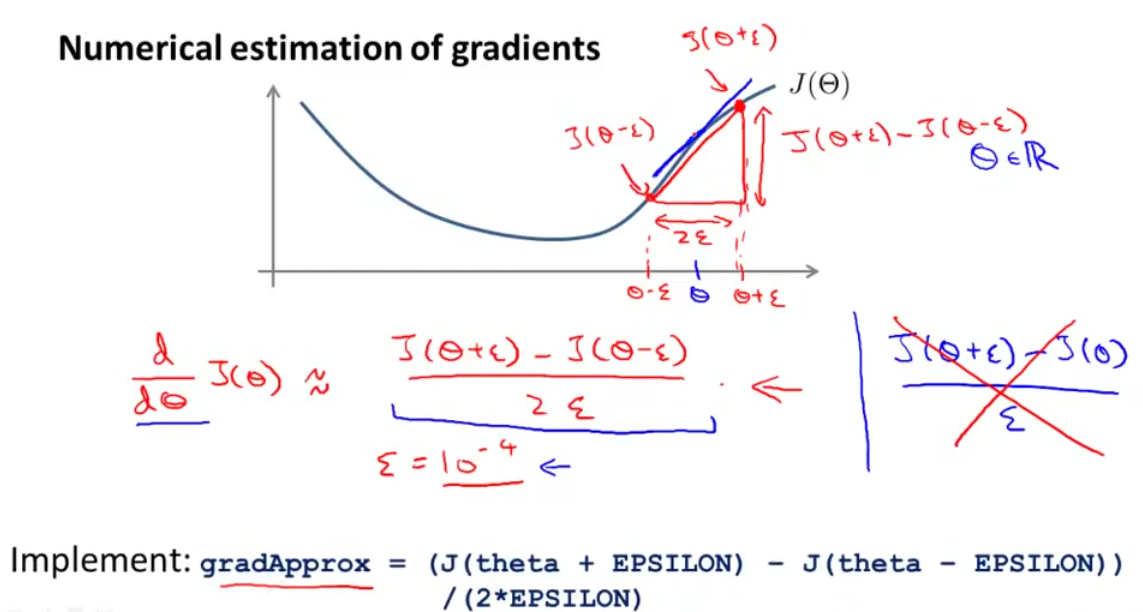 Numerical estimation of gradients
J(θ+ε)
J(Θ)
J(θ-ε)
J(θ+ε)-J(θ-ε)
θ∈ℝ
2ε
θ-ε θ θ+ε
d/dθ J(θ) ≈ (J(θ+ε) - J(θ-ε))/2ε ←
J(θ+ε)-J(θ)/ε
ε = 10⁻⁴ ←
Implement: gradApprox = (J(theta + EPSILON) - J(theta - EPSILON))
/(2*EPSILON)